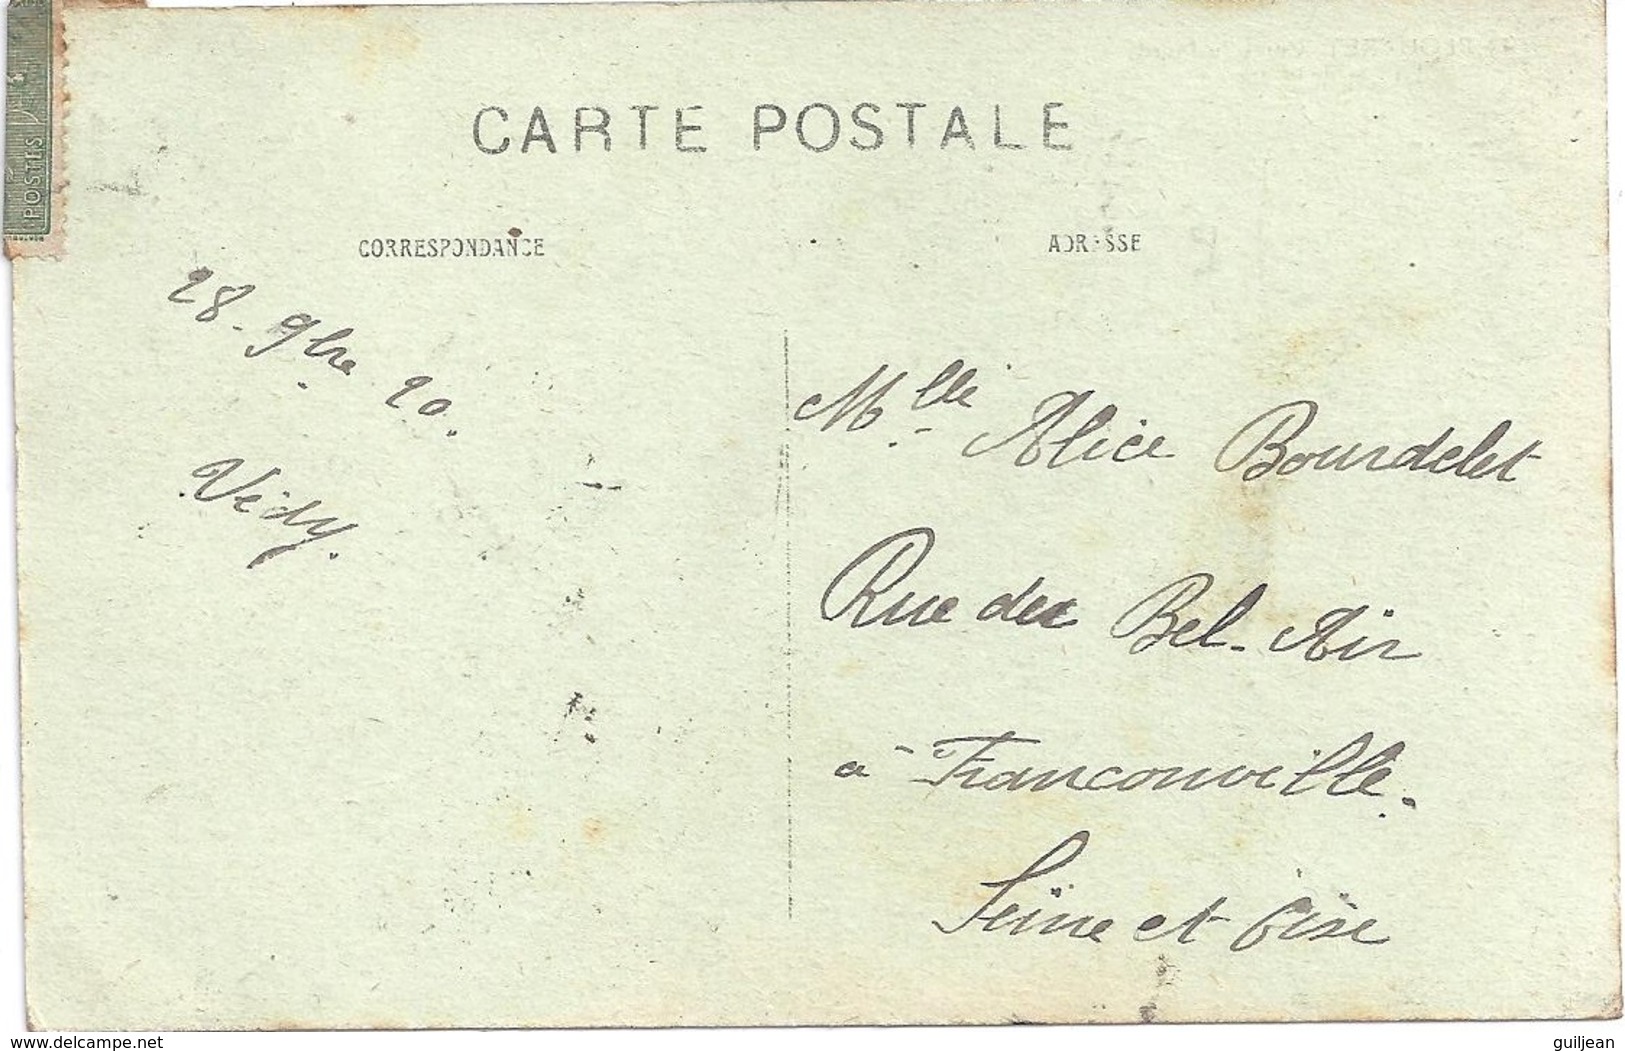 POSTES
CARTE POSTALE
CORRESPONDANCE
ADRESSE
28 - 9bre 20.
Védy.
Mlle Alice Bourdelet
Rue du Bel-Air
à Franconville.
Seine et Oise
www.delcampe.net
guiljean